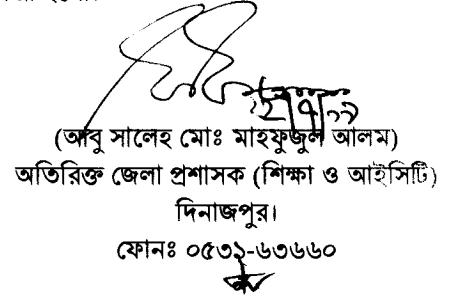 (আবু সালেহ মোঃ মাহফুজুল আলম)
অতিরিক্ত জেলা প্রশাসক (শিক্ষা ও আইসিটি)
দিনাজপুর।
ফোনঃ ০৫৩১-৬৩৬৬০